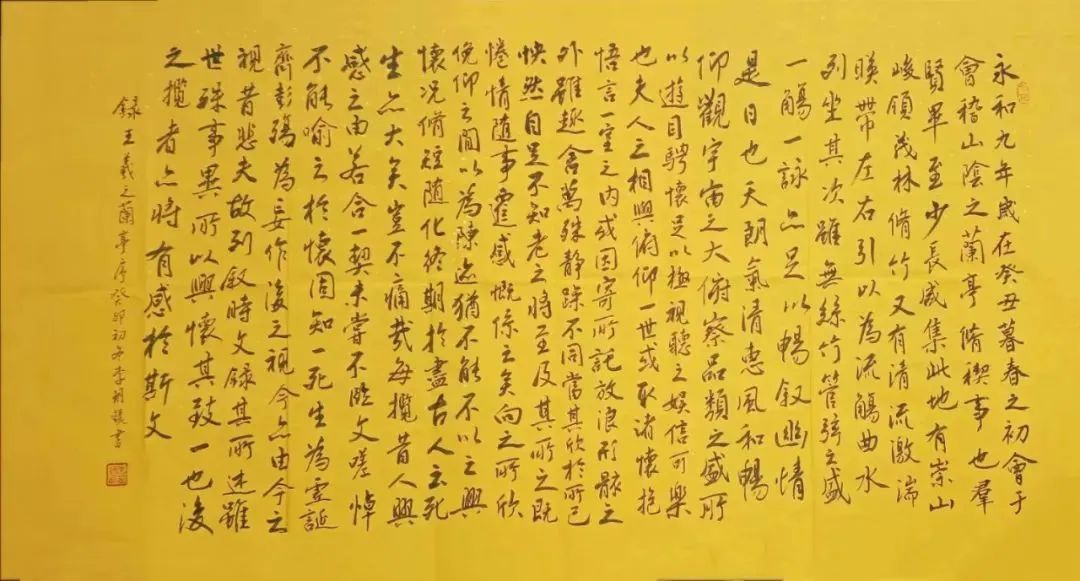 永和九年歲在癸丑暮春之初會于
會稽山陰之蘭亭脩禊事也羣
賢畢至少長咸集此地有崇山
峻領茂林脩竹又有清流激湍
暎帶左右引以為流觴曲水
列坐其次雖無絲竹管弦之盛
一觴一詠亦足以暢叙幽情
是日也天朗氣清惠風和暢
仰觀宇宙之大俯察品類之盛所
以遊目騁懷足以極視聽之娛信可樂
也夫人之相與俯仰一世或取諸懷抱
悟言一室之內或因寄所託放浪形骸之
外雖趣舍萬殊静躁不同當其欣於所己
怏然自足不知老之將至及其所之既
惓情隨事遷感慨係之矣向之所欣
俛仰之間以為陳迹猶不能不以之興
懷況脩短隨化終期於盡古人云死
生亦大矣豈不痛哉每攬昔人興
感之由若合一契未嘗不臨文嗟悼
不能喻之於懷固知一死生為虛誕
齊彭殤為妄作後之視今亦由今之
視昔悲夫故列叙時文錄其所述雖
世殊事異所以興懷其致一也後
之攬者亦將有感於斯文
錄王羲之蘭亭序癸卯初冬李書